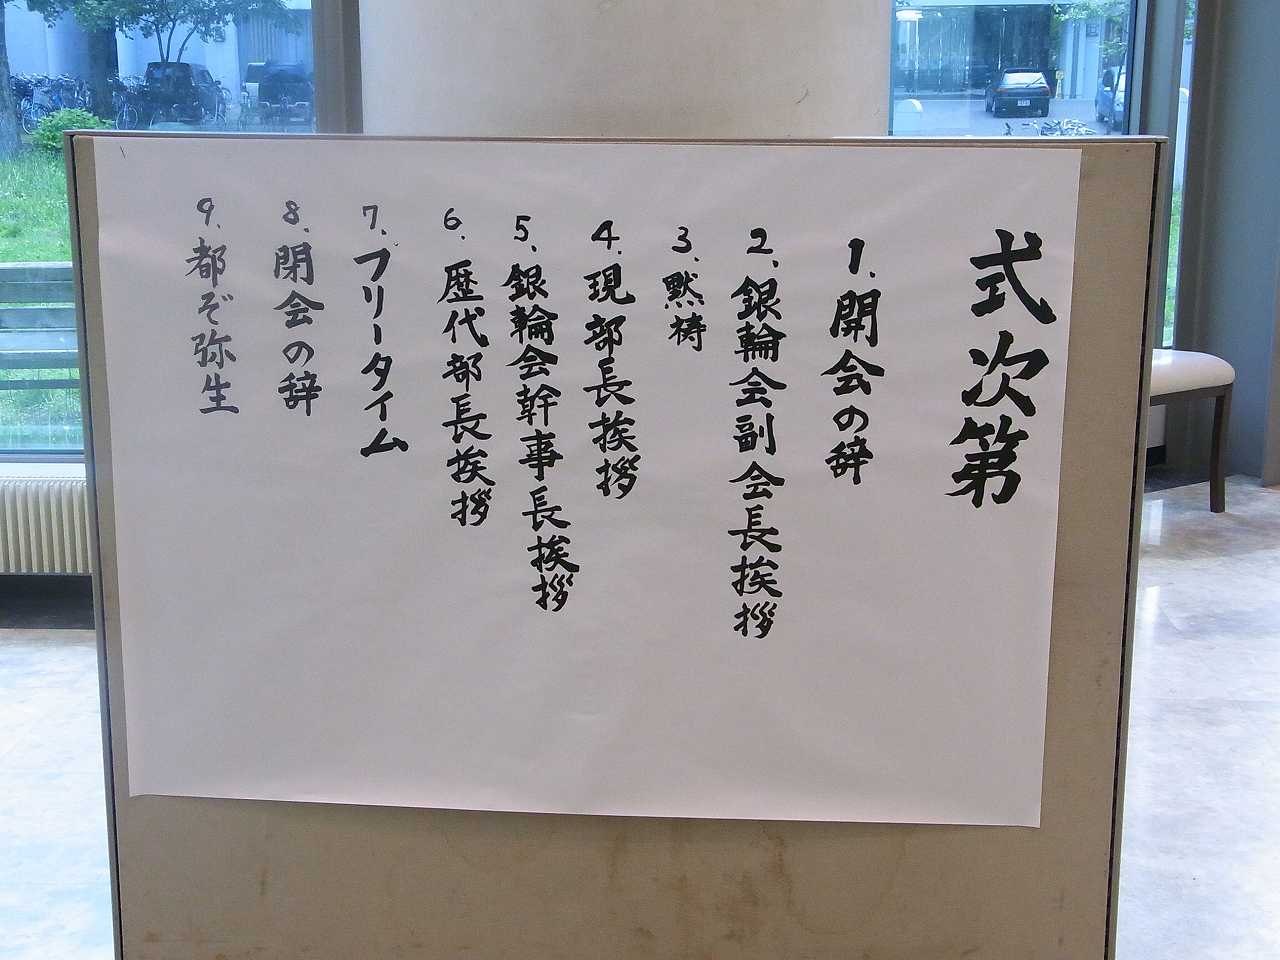 式次第
1、開会の辞
2、銀輪会副会長挨拶
3、黙祷
4、現部長挨拶
5、銀輪会幹事長挨拶
6、歴代部長挨拶
7、フリータイム
8、閉会の辞
9、都ぞ弥生